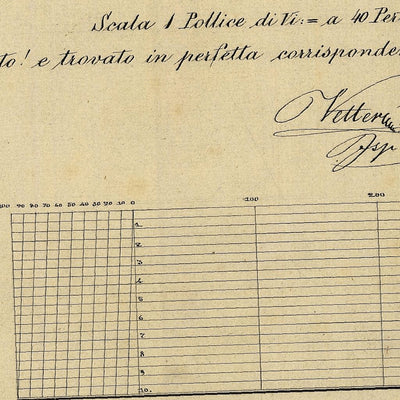 Scala 1 Pollice di Vi:= a 40 Per
to! e trovato in perfetta corrisponde
Jsp
90 80 70 60 50 40 30 20 10 0 100 200
1.
2
3
4
5
6
7
8
9
10.